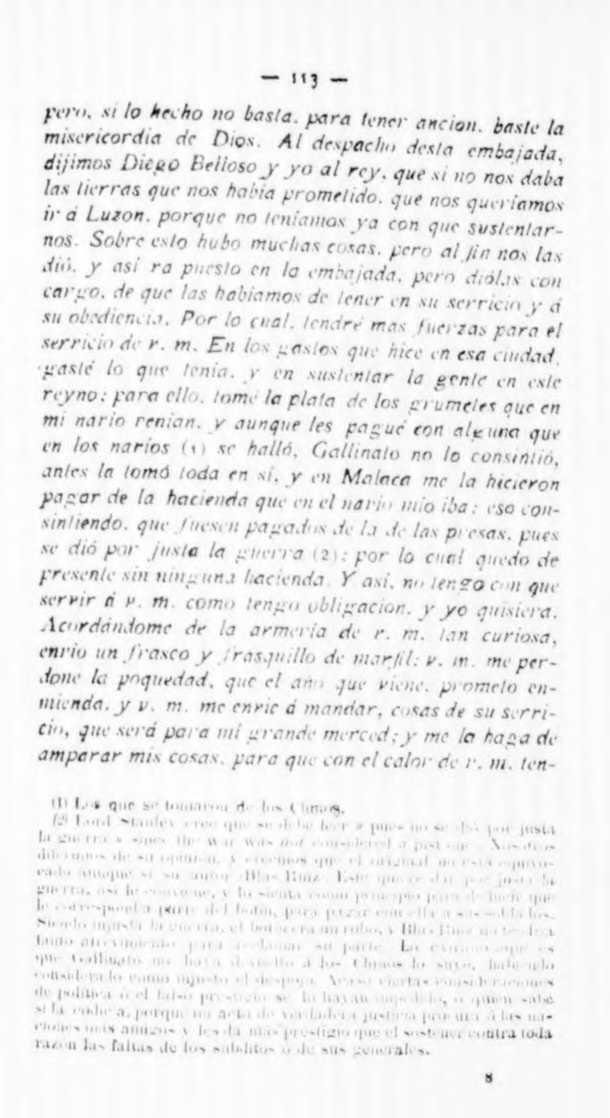 — 113 —
pero, si lo hecho no basta, para tener ancion, baste la
misericordia de Dios. Al despacho desta embajada,
dijimos Diego Belloso y yo al rey, que si no nos daba
las tierras que nos habia prometido, que nos queriamos
ir á Luzon, porque no teniamos ya con que sustentar-
nos. Sobre esto hubo muchas cosas, pero al fin nos las
dió, y asi va puesto en la embajada, pero diólas con
cargo, de que las habiamos de tener en su servicio y á
su obediencia. Por lo cual, tendré mas fuerzas para el
servicio de v. m. En los gastos que hice en esa ciudad,
gasté lo que tenia, y en sustentar la gente en este
reyno; para ello, tomé la plata de los grumetes que en
mi navio venian, y aunque les pagué con alguna que
en los navios (1) se halló, Gallinato no lo consintió,
antes la tomó toda en sí, y en Malaca me la hicieron
pagar de la hacienda que en el navio mio iba; eso con-
sintiendo, que fuesen pagados de la de las presas, pues
se dió por justa la guerra (2); por lo cual quedo de
presente sin ninguna hacienda. Y asi, no tengo con que
servir á v. m. como tengo obligacion, y yo quisiera.
Acordándome de la armería de v. m. tan curiosa,
envio un frasco y frasquillo de marfil; v. m. me per-
done la poquedad, que el año que viene, prometo en-
mienda, y v. m. me envie á mandar, cosas de su servi-
cio, que será para mí grande merced; y me la haga de
amparar mis cosas, para que con el calor de v. m. ten-
(1) Los que se tomaron de los Chinos.
(2) Lord Stanley cree que se debe leer « pues no se dió por justa
la guerra » since the war was not considered a just one. Nosotros
diferimos de su opinion, y creemos que el original no está equivo-
cado aunque sí su autor Blas Ruiz. Este quiere dar por justa la
guerra, así le conviene, y lo sienta como principio para
le corresponda parte del botin, para pagar con ella a sus soldados.
Siendo injusta la guerra, el botin era un robo, y Blas Ruiz no
tanto atrevimiento para reclamar su parte. Lo es
que Gallinato no haya devuelto á los Chinos lo suyo, habiendo
considerado como injusto el despojo. Acaso ciertas consideraciones
de política ó el falso prestigio se lo hayan impedido, ó quien sabe
si la codicia, porque un acto de verdadera justicia á las na-
ciones más amigos y les da más prestigio que el sostener contra toda
razon las faltas de los súbditos ó de sus generales.
8